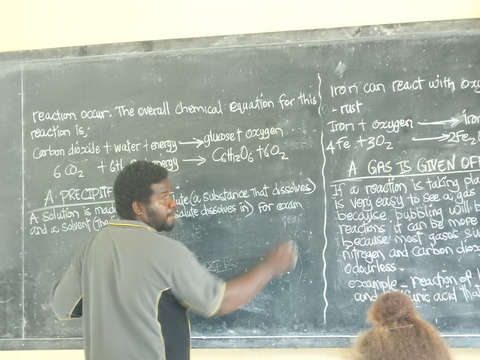 reaction occur. The overall chemical equation for this
reaction is.
Carbon dioxide + water + energy → glucose + oxygen
6 CO2 + 6H energy → C6H12O6 + 6O2
A. PRECIPIT
A solution is mad lute (a substance that dissolves)
and a solvent (tha salute dissolves in) for exam
Iron can react with oxy
- rust
Iron + oxygen → iron
4Fe + 3O2 → 2Fe2O
A GAS IS GIVEN OFF
If a reaction is taking pla
is very easy to see a gas
because bubbling will b
reactions it can be more
because most gases su
nitrogen and carbon diox
odourless.
example - reaction of
and uric acid that